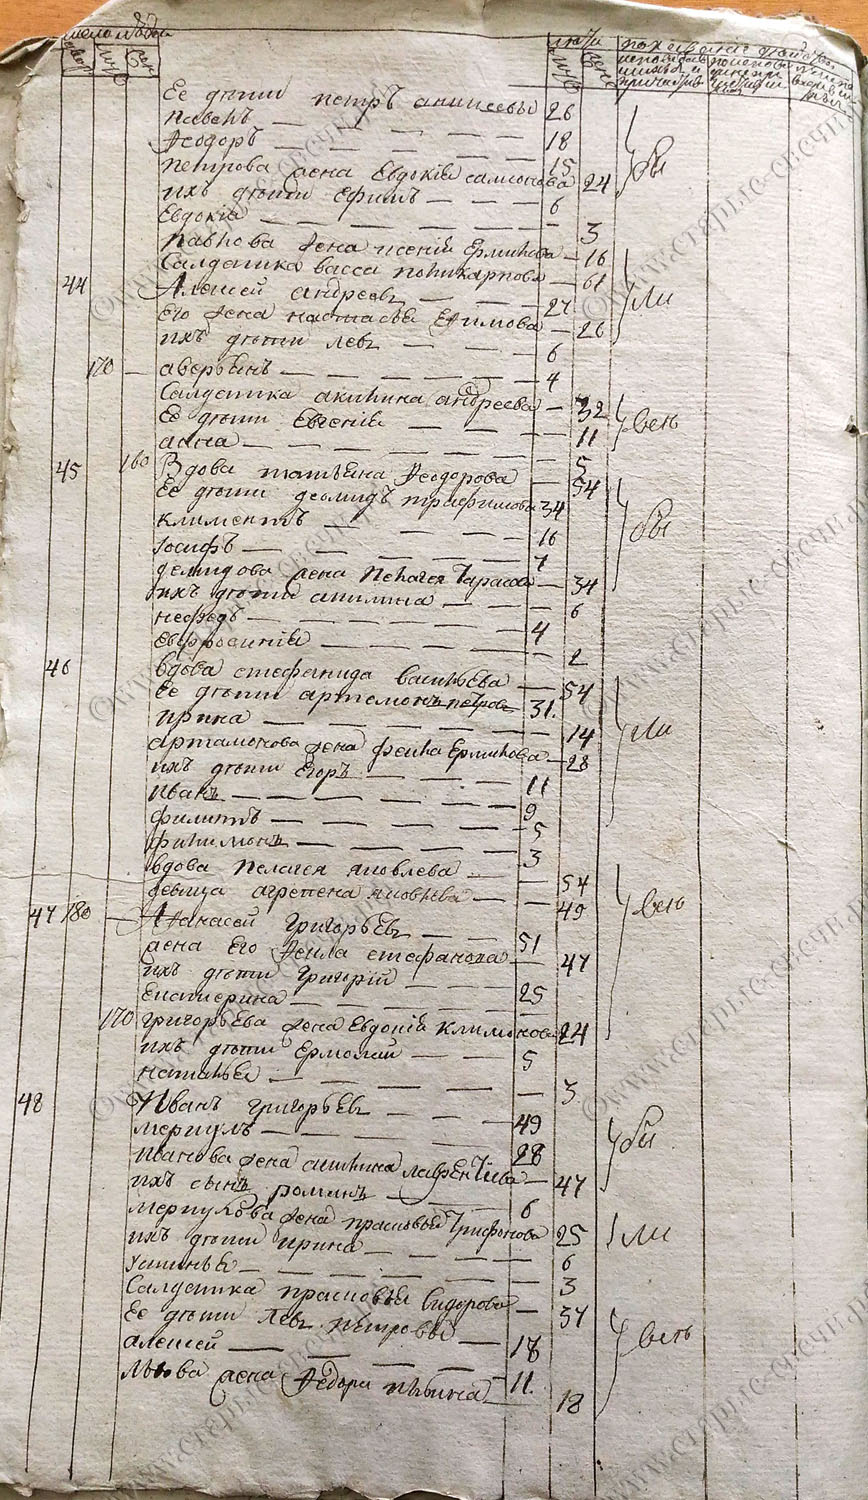 Ее дѣти петръ анисеевъ 26
павелъ 18
Ѳеодоръ 15
петрова жена Евдокія самсонова 24
ихъ дѣти Ефимъ 6
Евдокіа 3
павлова жена ксенія Ермилова 16
Салдатка васса поликарпова 61
44 Алексей андреевъ 27
его жена настасья Ефимова 26
ихъ дѣти левъ 6
170 аверьянъ 4
Салдатка акилина андреева 32
Ее дѣти Евгенія 11
анна 5
45 160 Вдова татьяна Ѳеодорова 54
Ее дѣти деомидъ трафимовъ 34
климентъ 16
Іосифъ 7
демидова жена пелагея тарасова 34
ихъ дѣти акилина 6
нефедъ 4
евфросинія 2
46 вдова стефанида васильева 54
Ее дѣти артемонъ петровъ 31.
ирина 14
артамонова жена фекла Ермилова 28
ихъ дѣти Егоръ 11
иванъ 9
филиппъ 5
филимонъ 3
вдова пелагея яковлева 54
девица агрепена яковлева 49
47 180 Аѳанасей григорьевъ 51
жена Его Ѳекла стефанова 47
ихъ дѣти григорій 25
Екатерина
170 григорьева жена Евдокія климонова 24
ихъ дѣти Ермолай 5
наталья 3
48 Иванъ григорьевъ 49
меркулъ 28
иванова жена акилина лаврентиева 47
ихъ сынъ романъ 6
меркулова жена прасковья трифонова 25
ихъ дѣти ирина 6
устинья 3
Салдатка прасковья сидорова 37
Ее дѣти левъ петровъ 18
алексей 11.
львова жена Ѳедора ильина 18
бы
ли
вси
бы
ли
вси
бы
ли
вси